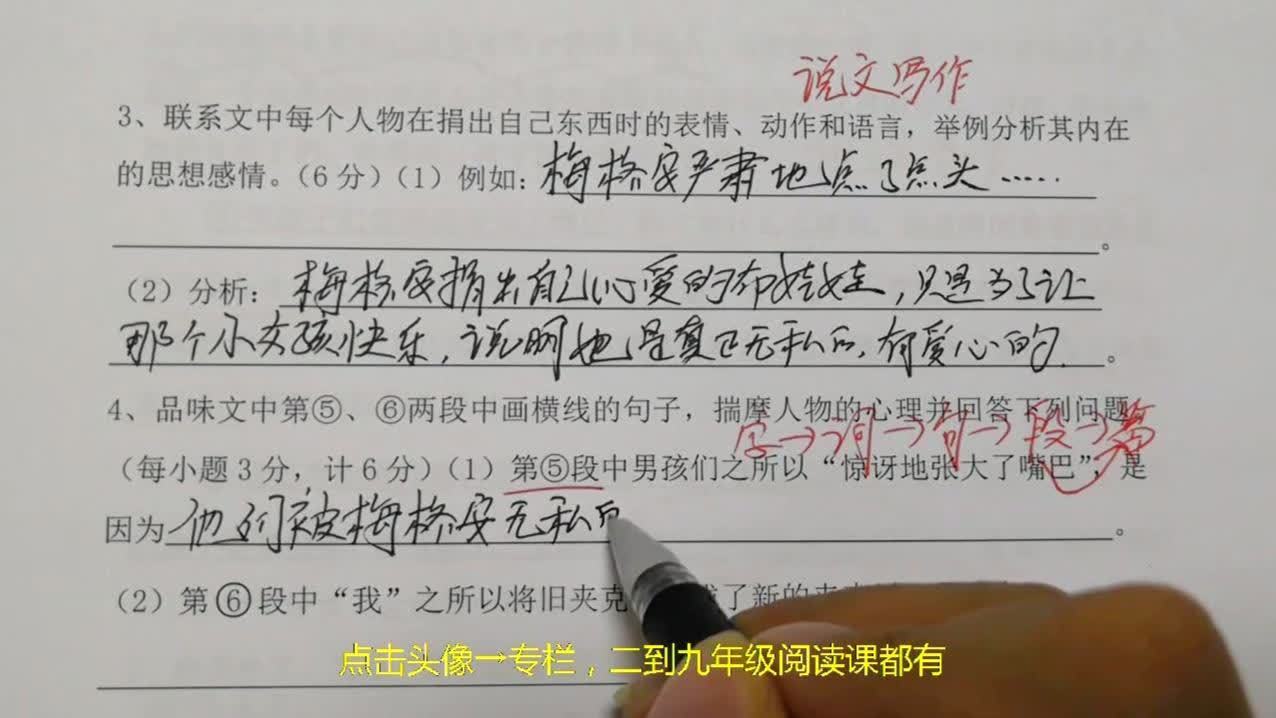 说文写作
3、联系文中每个人物在捐出自己东西时的表情、动作和语言，举例分析其内在
的思想感情。（6分）（1）例如：梅格安严肃地点了点头……
。
（2）分析：梅格安捐出自己心爱的布娃娃，只是为了让
那个小女孩快乐，说明她是真正无私的，有爱心的。
4、品味文中第⑤、⑥两段中画横线的句子，揣摩人物的心理并回答下列问题
字→词→句→段→篇
（每小题3分，计6分）（1）第⑤段中男孩们之所以“惊讶地张大了嘴巴”，是
因为他们被梅格安无私的。
（2）第⑥段中“我”之所以将旧夹克 了新的夹克
点击头像→专栏，二到九年级阅读课都有